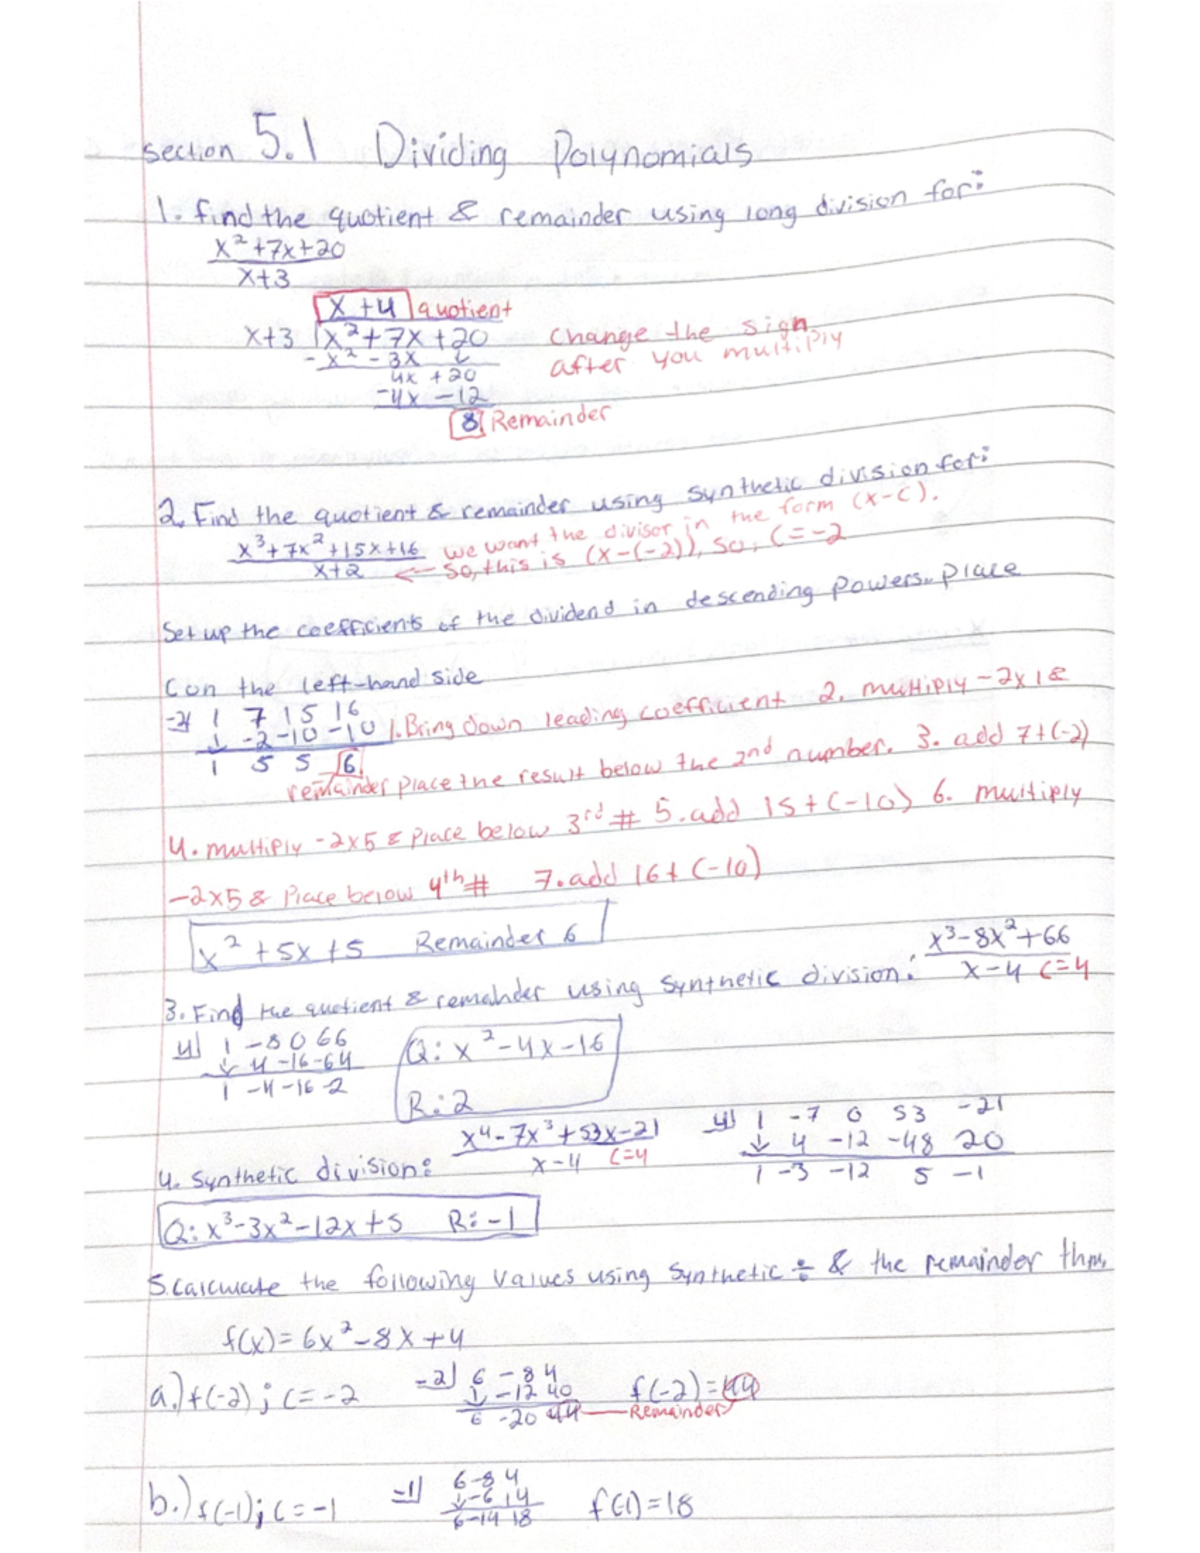 section 5.1 Dividing Polynomials
1. find the quotient & remainder using long division for:
x²+7x+20
x+3
x+4 quotient
x+3 x²+7x+20 Change the sign
- x² - 3x after you multiply
4x +20
-4x -12
8 Remainder
2. Find the quotient & remainder using synthetic division for:
x³+7x²+15x+16 we want the divisor in the form (x-c).
x+2 ← So, this is (x-(-2)), so, c=-2
Set up the coefficients of the dividend in descending powers. Place
C on the left-hand side
-2| 1 7 15 16
↓ -2 -10 -10 1. Bring down leading coefficient 2. multiply -2x1 &
1 5 5 6
remainder place the result below the 2nd number. 3. add 7+(-2)
4. multiply -2x5 & place below 3rd # 5. add 15+(-10) 6. multiply
-2x5 & Place below 4th # 7. add 16+(-10)
x²+5x+5 Remainder 6
x³-8x²+66
3. Find the quotient & remainder using synthetic division: x-4 c=4
4| 1 -8 0 66
↓ 4 -16 -64
1 -4 -16 2
Q: x²-4x-16
R: 2
x⁴-7x³+53x-21
4. Synthetic division: x-4 c=4
4| 1 -7 0 53 -21
↓ 4 -12 -48 20
1 -3 -12 5 -1
Q: x³-3x²-12x+5 R: -1
5. Calculate the following values using synthetic ÷ & the remainder thm.
f(x)=6x²-8x+4
a.) f(-2); c=-2
-2| 6 -8 4
↓ -12 40
6 -20 44
f(-2)=44
Remainder
b.) f(-1); c=-1
-1| 6 -8 4
↓ -6 14
6 -14 18
f(-1)=18